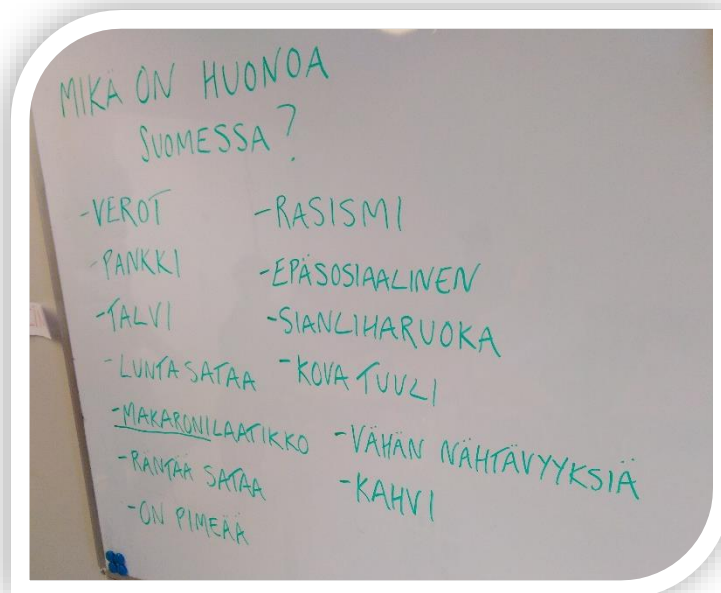 MIKÄ ON HUONOA
SUOMESSA?
-VEROT
-PANKKI
-TALVI
-LUNTA SATAA
-MAKARONILAATIKKO
-RÄNTÄÄ SATAA
-ON PIMEÄÄ
-RASISMI
-EPÄSOSIAALINEN
-SIANLIHARUOKA
-KOVA TUULI
-VÄHÄN NÄHTÄVYYKSIÄ
-KAHVI